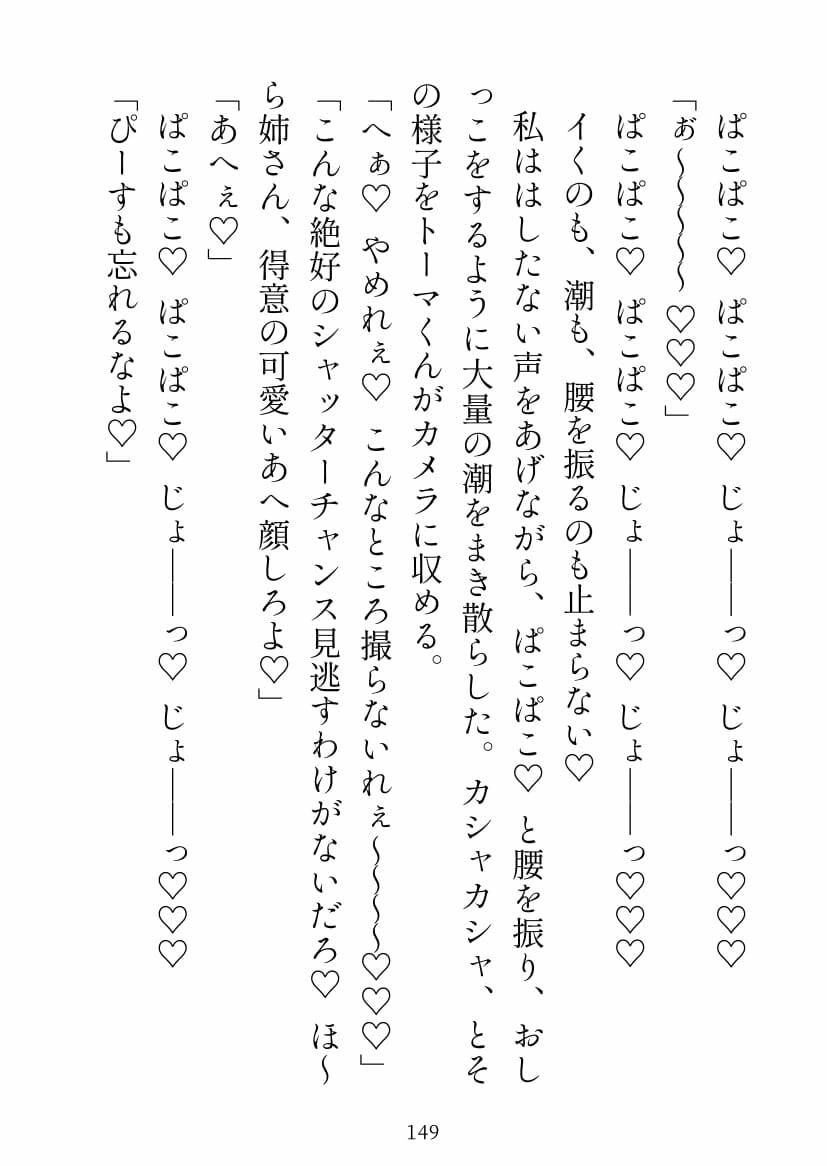 ぱこぱこ♡ ぱこぱこ♡ じょ――っ♡ じょ――っ♡♡♡
「ぉ゛〜〜〜〜〜♡♡♡」
ぱこぱこ♡ ぱこぱこ♡ じょ――っ♡ じょ――っ♡♡♡
イくのも、潮も、腰を振るのも止まらない♡
私ははしたない声をあげながら、ぱこぱこ♡ と腰を振り、おし
っこをするように大量の潮をまき散らした。カシャカシャ、とそ
の様子をトーマくんがカメラに収める。
「へぁ♡ やめれぇ♡ こんなところ撮らないれぇ〜〜〜〜♡♡♡」
「こんな絶好のシャッターチャンス見逃すわけがないだろ♡ ほ〜
ら姉さん、得意の可愛いあへ顔しろよ♡」
「あへぇ♡」
ぱこぱこ♡ ぱこぱこ♡ じょ――っ♡ じょ――っ♡♡♡
「ぴーすも忘れるなよ♡」
149